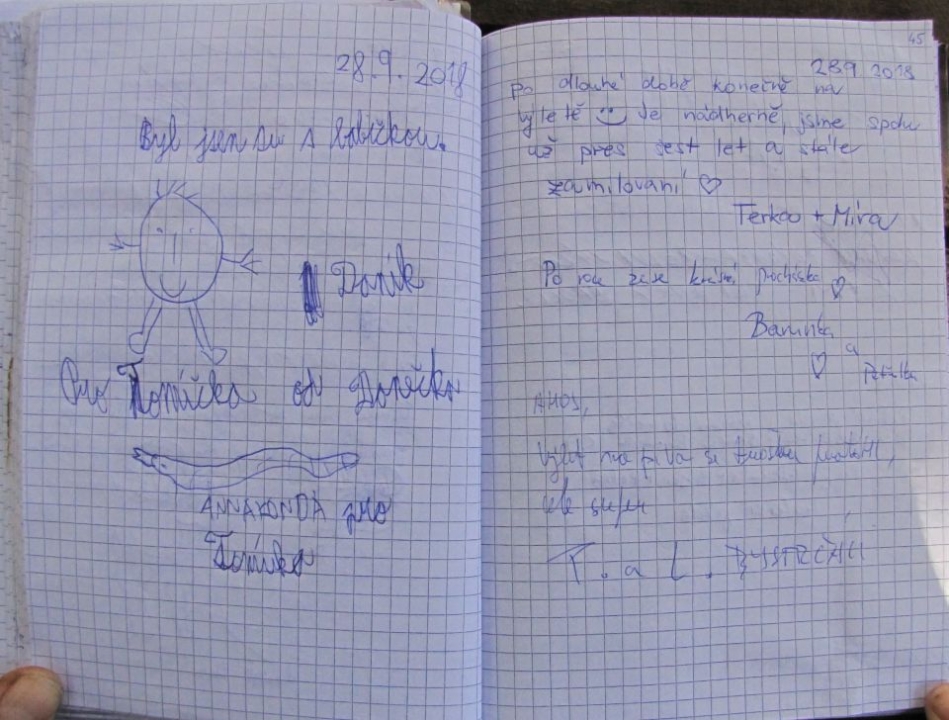 28.9. 2018
Byl jsem tu s babičkou.
Daník
Pro Tomíčka od Daníčka
ANNAKONDA pro
Tomíka
45
28 9 2018
Po dlouhé době konečně na
výletě Je nádherně, jsme spolu
už přes šest let a stále
zamilovaní ♡
Terka + Míra
Po roce zase krásná procházka ♡
Barunka
a
♡ Petulka
AHOJ,
výlet na piva se trošku protáhl,
ale super
T. a L. BYSTRČÁCI